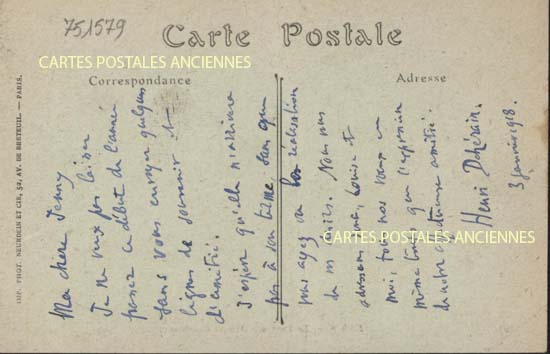 751579
Carte Postale
CARTES POSTALES ANCIENNES
Correspondance
Adresse
IMP. PHOT. NEURDEIN ET CIE, 52, AV. DE BRETEUIL. — PARIS.
Ma chère Jenny
Je ne veux pas laisser
passer ce début de l'année
sans vous envoyer quelques
lignes de souvenir et
d'amitié.
J'espère qu'elle n'arrivera
pas à son terme sans que
vous ayez vu la réalisation
de vos désirs. Nous vous
adressons, Louise et
moi, tous nos vœux en
même temps que l'expression
de notre affectueuse amitié.
Henri Dehérain.
3 janvier 1918.
CARTES POSTALES ANCIENNES